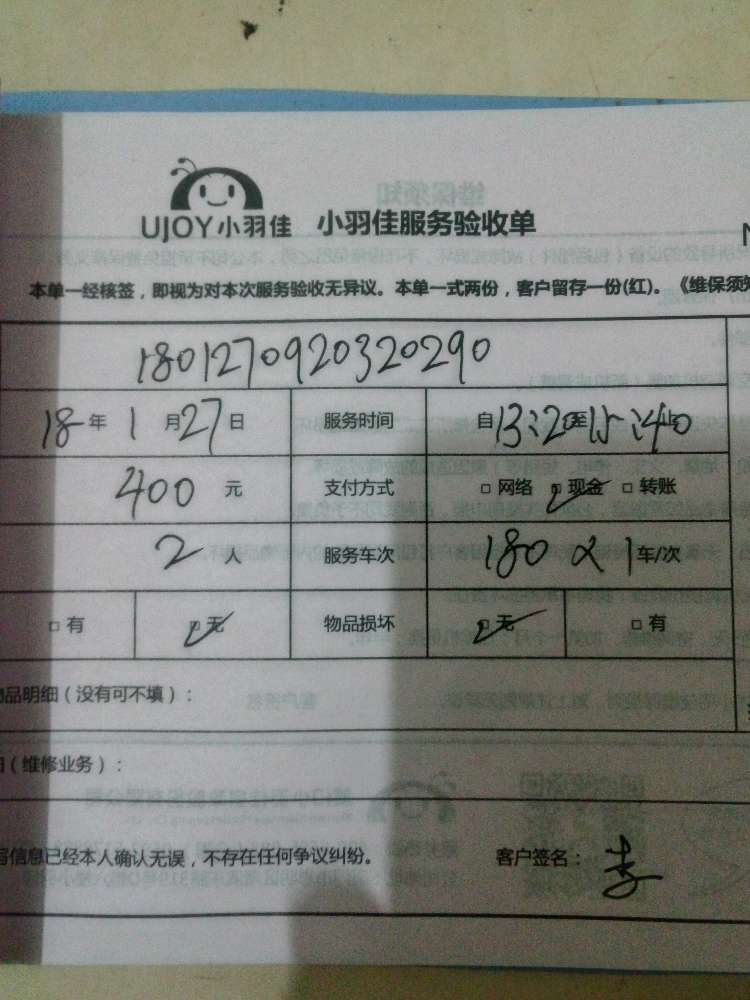 UJOY小羽佳 小羽佳服务验收单
本单一经核签，即视为对本次服务验收无异议。本单一式两份，客户留存一份(红)。《维保须知
1801270920320290
18年1月27日 服务时间 自13:20至15:40止
400元 支付方式 网络 现金 转账
2人 服务车次 180×1车/次
有 无 物品损坏 无 有
品明细（没有可不填）：
（维修业务）：
容信息已经本人确认无误，不存在任何争议纠纷。 客户签名：李